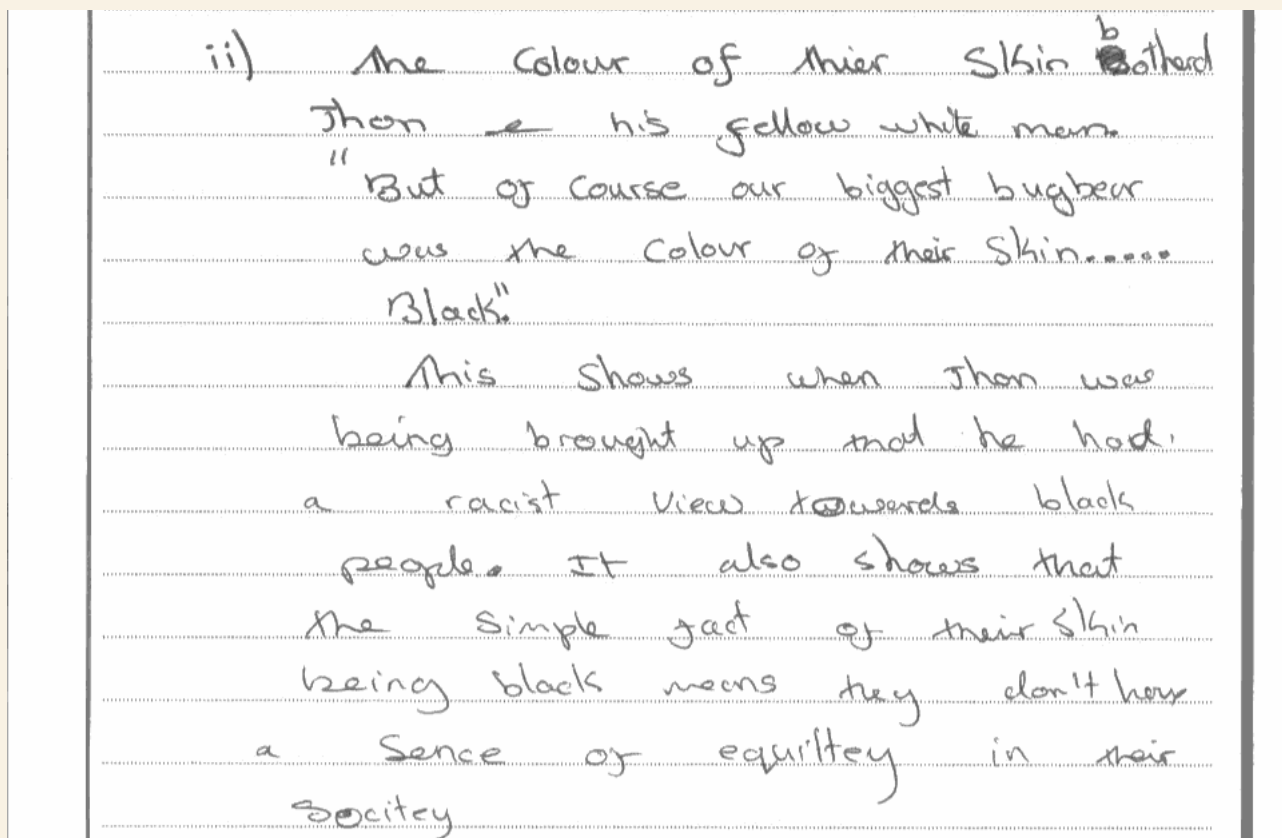 ii) The Colour of thier Skin botherd
Jhon & his fellow white men.
"But of Course our biggest bugbear
was the Colour of their Skin.....
Black".
This Shows when Jhon was
being brought up that he had
a racist view towards black
people. It also shows that
the simple fact of their skin
being black means they don't have
a Sence of equiltey in their
Socitey